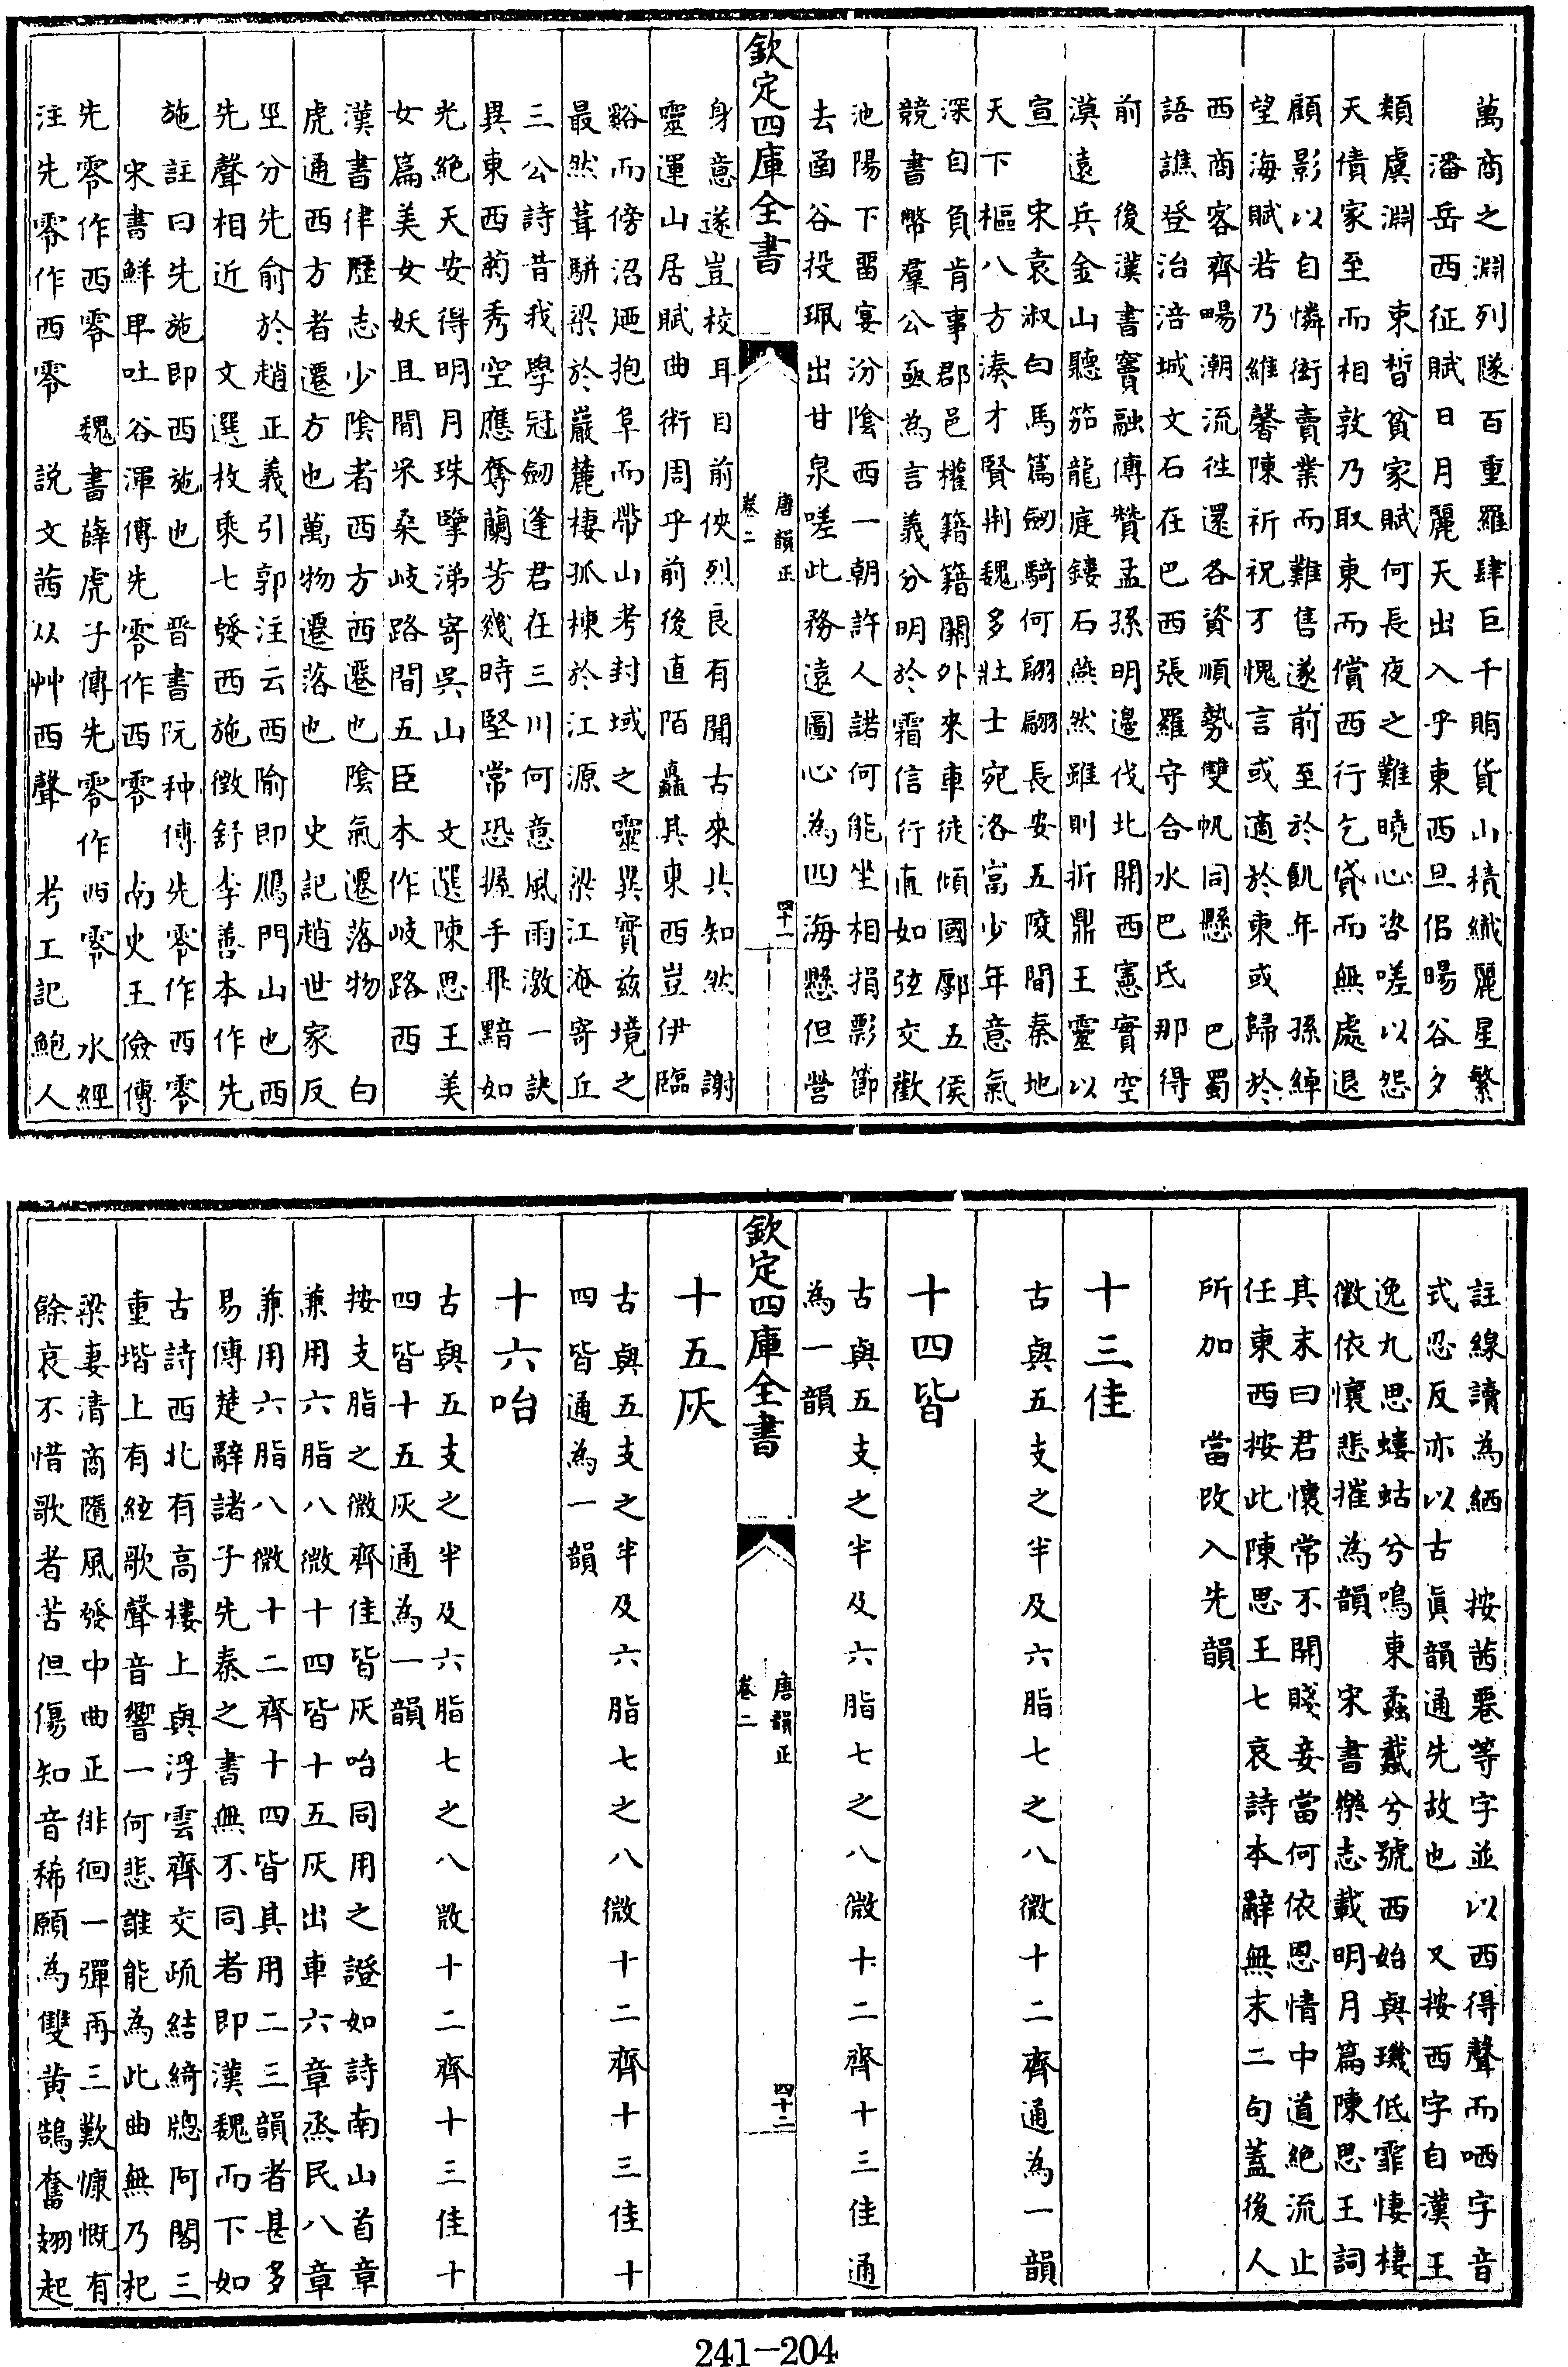 萬商之淵列隧百重羅肆巨千賄貨山積纎麗星繁
潘岳西征賦日月麗天出入乎東西旦侣暘谷夕
類虞淵　束晳貧家賦何長夜之難曉心咨嗟以怨
天債家至而相敦乃取東而償西行乞貸而無處退
顧影以自憐衒賣業而難售遂前至於飢年　孫綽
望海賦若乃維馨陳祈祝不愧言或適於東或歸於
西商客齊暢潮流往還各資順勢雙帆同懸　巴蜀
語譙登治涪城文石在巴西張羅守合水巴氐那得
前　後漢書竇融傳贊孟孫明邊伐北開西憲實空
漠遠兵金山聽笳龍庭鏤石燕然雖則折鼎王靈以
宣　宋袁淑白馬篇劒騎何翩翩長安五陵間秦地
天下樞八方湊才賢荆魏多壯士宛洛富少年意氣
深自負肯事郡邑權籍籍關外來車徒傾國鄽五侯
競書幣羣公亟為言義分明於霜信行直如弦交歡
池陽下畱宴汾陰西一朝許人諾何能坐相捐影節
去函谷投珮出甘泉嗟此務遠圖心為四海懸但營
欽定四庫全書
唐韻正
卷二
四十一
身意遂豈校耳目前俠烈良有聞古來共知然　謝
靈運山居賦曲術周乎前後直陌矗其東西豈伊臨
谿而傍沼廼抱阜而帶山考封域之靈異實兹境之
最然葺駢梁於巖麓棲孤棟於江源　梁江淹寄丘
三公詩昔我學冠劒逢君在三川何意風雨激一訣
異東西菂秀空應奪蘭芳幾時堅常恐握手畢黯如
光絶天安得明月珠擥涕寄吳山　文選陳思王美
女篇美女妖且閒采桑岐路間五臣本作岐路西
漢書律歷志少陰者西方西遷也陰氣遷落物　白
虎通西方者遷方也萬物遷落也　史記趙世家反
坙分先俞於趙正義引郭注云西隃即鴈門山也西
先聲相近　文選枚乘七發西施徵舒李善本作先
施註曰先施即西施也　晉書阮种傳先零作西零
宋書鮮卑吐谷渾傳先零作西零　南史王儉傳
先零作西零　魏書薛虎子傳先零作西零　水經
注先零作西零　説文茜从艸西聲　考工記鮑人
註線讀為綇　按茜䙴等字並以西得聲而哂字音
式忍反亦以古眞韻通先故也　又按西字自漢王
逸九思螻蛄兮鳴東蟊蠽兮號西始與璣低霏悽棲
徵依懷悲摧為韻　宋書樂志載明月篇陳思王詞
其末曰君懷常不開賤妾當何依恩情中道絶流止
任東西按此陳思王七哀詩本辭無末二句蓋後人
所加　當改入先韻
十三佳
古與五支之半及六脂七之八微十二齊通為一韻
十四皆
古與五支之半及六脂七之八微十二齊十三佳通
為一韻
欽定四庫全書
唐韻正
卷二
四十二
十五灰
古與五支之半及六脂七之八微十二齊十三佳十
四皆通為一韻
十六咍
古與五支之半及六脂七之八微十二齊十三佳十
四皆十五灰通為一韻
按支脂之微齊佳皆灰咍同用之證如詩南山首章
兼用六脂八微十四皆十五灰出車六章烝民八章
兼用六脂八微十二齊十四皆其用二三韻者甚多
易傳楚辭諸子先秦之書無不同者即漢魏而下如
古詩西北有高樓上與浮雲齊交疏結綺牕阿閣三
重堦上有絃歌聲音響一何悲誰能為此曲無乃杞
梁妻清商隨風發中曲正徘徊一彈再三歎慷慨有
餘哀不惜歌者苦但傷知音稀願為雙黄鵠奮翅起
241—204